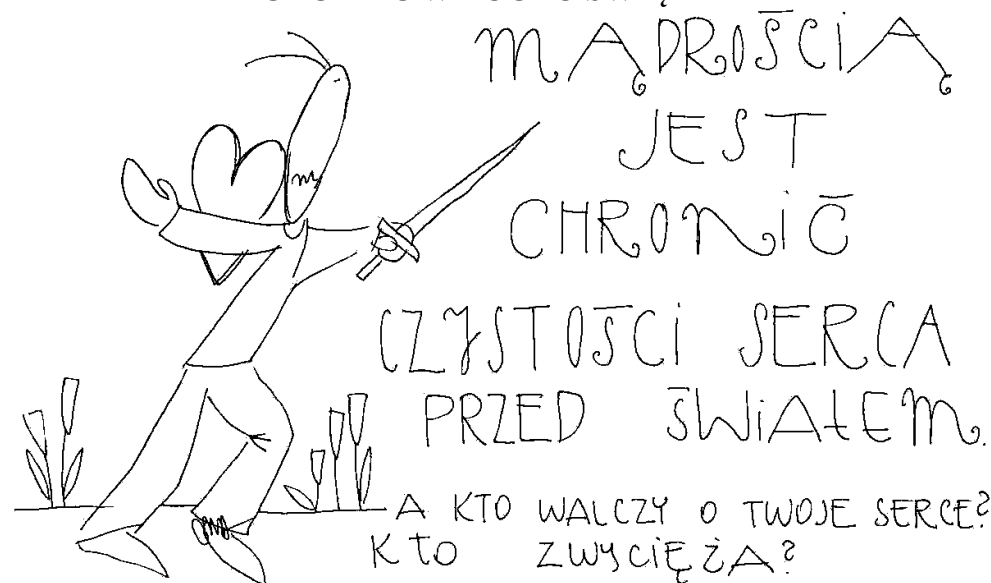 MĄDROŚCIĄ
JEST
CHRONIĆ
CZYSTOŚCI SERCA
PRZED ŚWIAŁEM.
A KTO WALCZY O TWOJE SERCE?
KTO ZWYCIĘŻA?